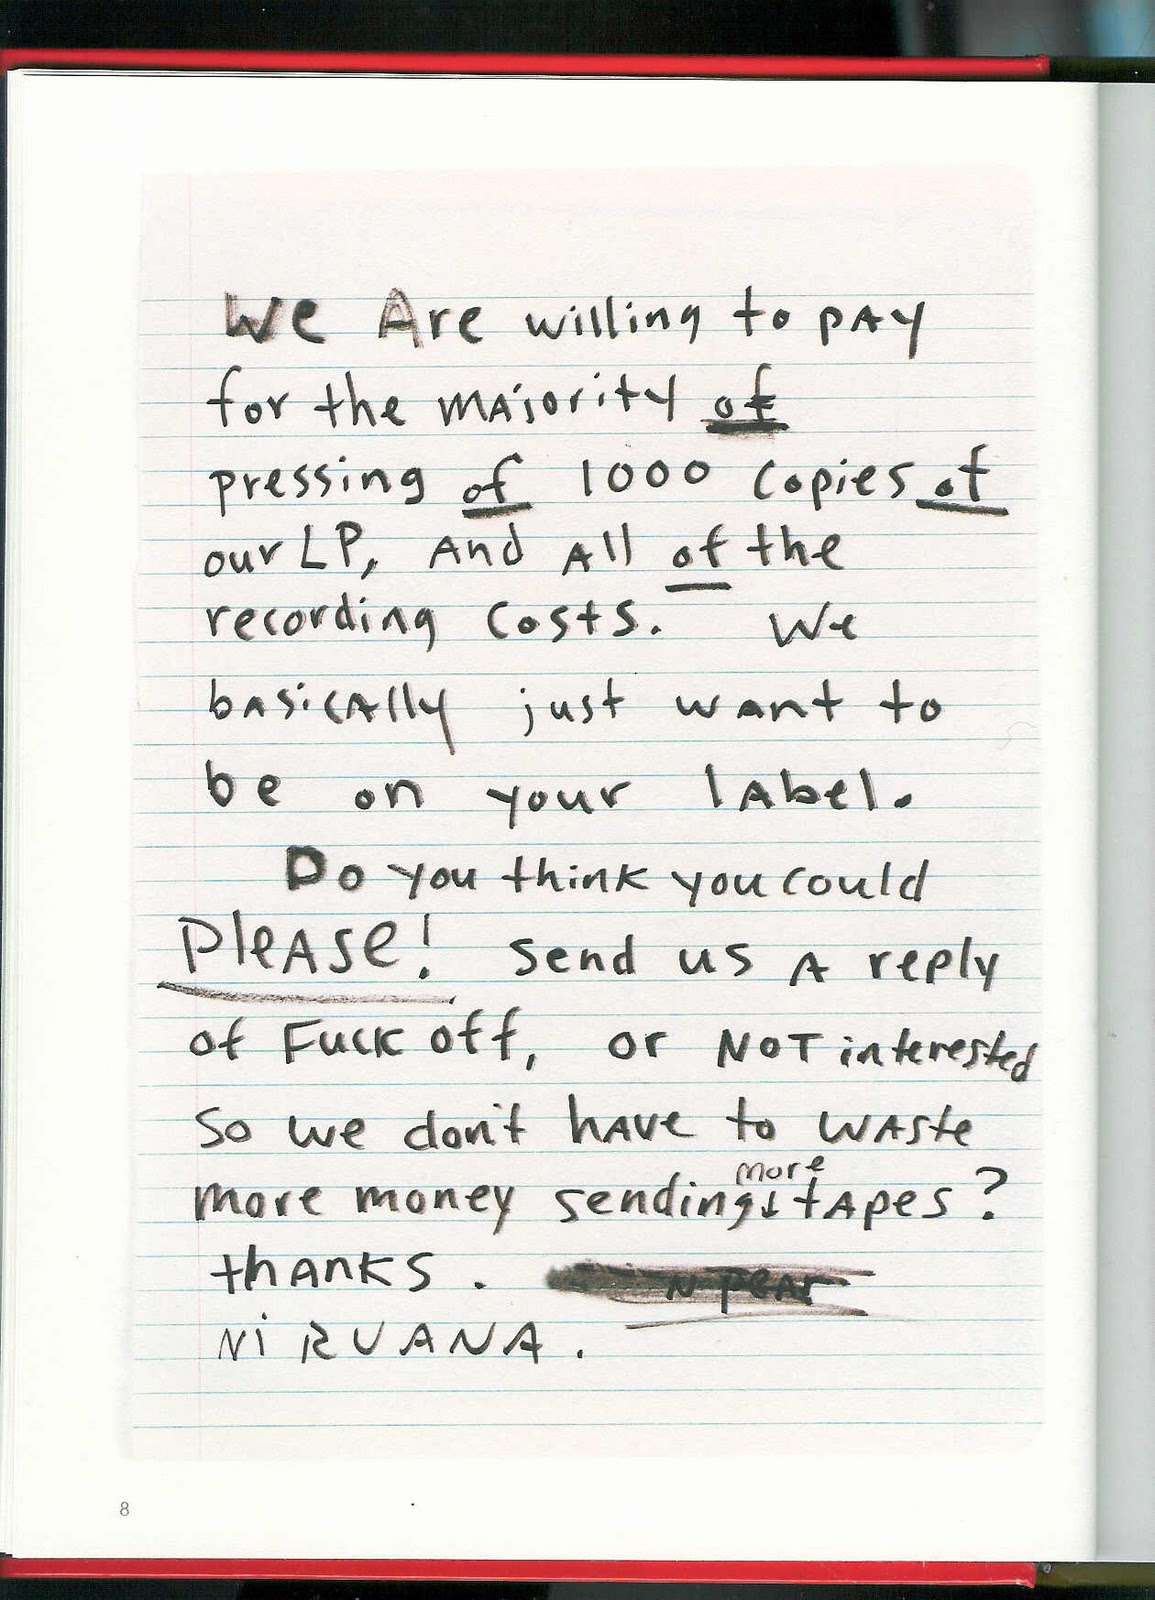 We Are willing to pAy
for the mAjority of
pressing of 1000 copies of
our LP, And All of the
recording costs. We
bAsicAlly just want to
be on your lAbel.
Do you think you could
PleAse! Send us A reply
of Fuck off, or NOT interested
So we don't hAve to wAste
more money sending more tApes?
thAnks.
NiRVANA.
8